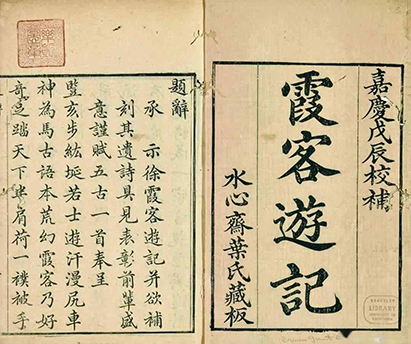 嘉慶戊辰校補
霞客遊記
水心齋葉氏藏板
LIBRARY
題辭
承 示徐霞客遊記并欲補
刻其遺詩具見表彰前輩盛
意謹賦五古一首奉呈
豎亥步紘埏若士遊汗漫尻車
神為馬古語本荒幻霞客乃好
奇足踏天下半肩荷一襆被手